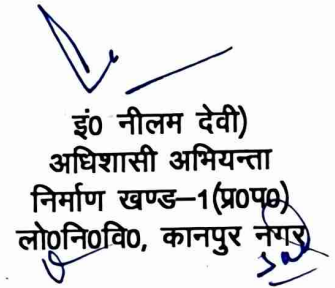 इं0 नीलम देवी)
अधिशासी अभियन्ता
निर्माण खण्ड–1(प्र0प0)
लो0नि0वि0, कानपुर नगर